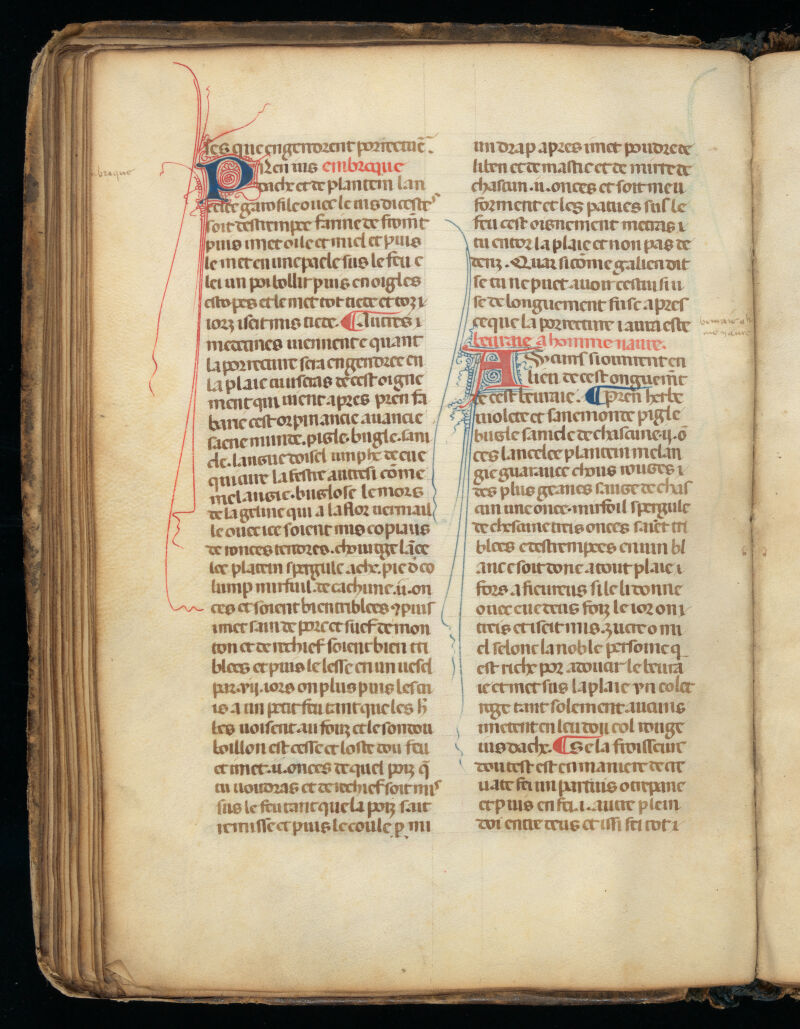 ies que engendrent porreture.
Pren ius embroque
dache et de plantein lan
celee garofile ouec le ius di cest
soit destrempee farine de fromt
puis i met oile et miel et puis
le met en une paele sus le feu e
lei un poi bollir puis en oigles
estopes et le met tot tiede et toz i
iorz iseit mis tiede. Autres i
medecines uienent e quant
la porreture sera engendree en
la plaie tu useras de cest oigne
ment qui uient apres pren fa
barie cest orpin ancie auancie
sarie munde. pigle. bugle. sani
cle. langue doisel
qui cure la festre autresi come
melangie. buglose le mors
de la geline qui a la flor uermail
le ouec ice soient mis copiaus
de ronces tendres. chouuge lace
lee platein spergule. ache. pie d co
lump mirfuil. de cachune. ii. on
ces et soient bien triblees et puis
i met sain de porc et suef de mon
ton et de rechief soient bien tri
blees et puis le lesse en un uesel
par. vii. iors ou plus puis les cui
ie a un petit feu tant que les h
bes uoisent au fonz et le son dou
boillon est cesse et loste dou feu
et i met. ii. onces de quel poiz q
tu uoudras et de rechief soit mis
sus le feu tant que la poiz soit
remisse et puis le coule p mi
un drap apres i met poudre de
liben et de mastic et de mirre de
chascun. ii. onces et soit meu
forment et les paties sus le
feu cest oignement metras i
tu entor la plaie et non pas de
denz. Quar si come galien dit
se tu ne puet auoir cestui si u
se de longuement fuse apres
ce que la porreture i aura este
beuraie a homme naure.
A
lien de cest onguemt
de cest beuraie. Pren herbe
uiolete et sanemonde pigle
bugle sanicle de chascune. ii. o
ces lancelee plantein melan
gie guarance chous rouges i
des plus grans sauge de chas
cun une once. mirfoil spergule
de chescune treis onces soiet tri
blees e destrempees en uin bl
anc e soit done a tout plaie i
fors a ficureus si le li donne
ouec eue deus foiz le ior on i
treis et iseit mis. zucre o mi
el selonc la noble persoine q
est riche por adoucir le beura
ie et met sus la plaie vn colet
rige tant solement. aucuns
i metent en leu dou col rouge
ius dache. Se la froisseure
dou test est en maniere de cre
uace fei un partuis o trepane
et puis en fei. i. autre plein
doi entre deus et issi fei tot i
broque